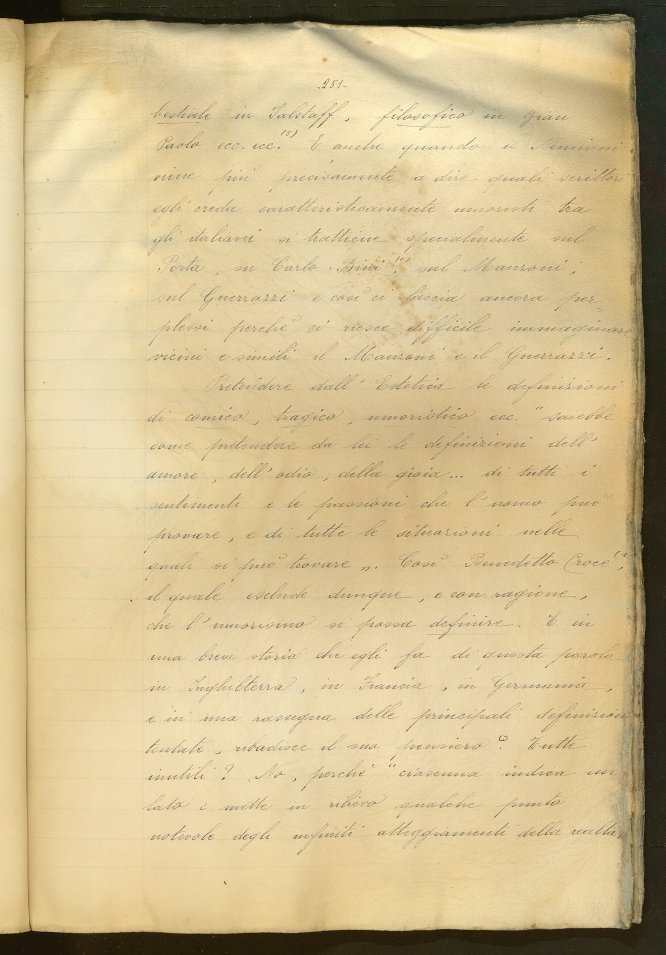 -251-
bestiale in Falstaff, filosofico in Gian
Paolo ecc. ecc. (1) E anche quando il Nencioni
viene più precisamente a dire quali scrittori
egli creda caratteristicamente umoristi tra
gli italiani si trattiene specialmente sul
Porta, su Carlo Bini, sul Manzoni,
sul Guerrazzi e così ci lascia ancora per-
plessi perchè ci riesce difficile immaginare
vicini e simili il Manzoni e il Guerrazzi.
Pretendere dall'Estetica le definizioni
di comico, tragico, umoristico ecc. "sarebbe
come pretendere da lei le definizioni dell'
amore, dell'odio, della gioia... di tutti i
sentimenti e le passioni che l'uomo può
provare, e di tutte le situazioni nelle
quali si può trovare„. Così Benedetto Croce,
il quale esclude dunque, e con ragione,
che l'umorismo si possa definire. E in
una breve storia che egli fa di questa parola
in Inghilterra, in Francia, in Germania,
e in una rassegna delle principali definizioni
tentate, ribadisce il suo pensiero. Tutte
inutili? No, perchè "ciascuna indica un
lato e mette in rilievo qualche punto
notevole degli infiniti atteggiamenti della realtà„